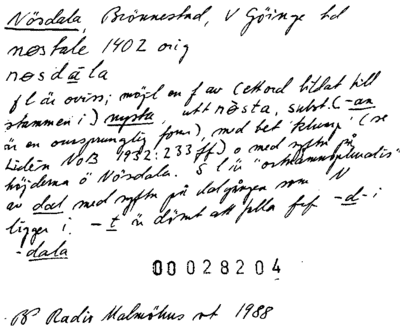 Nösdala, Brönnestad, V Göinge hd
nøstale 1402 orig
nøsdāla
f l är oviss; möjl en f av (ett ord bildat till
stammen i) nysta, utt nösta, subst. (-an
är en ursprunglig form), med bet "klump" (se
Lidén NoB 1932:233 ff) o med syftn på
höjderna ö Nösdala. S l är "ortnamnspluralis"
av dal med syftn på dalgången som N
ligger i. -t är dömt att falla fsf -d- i
-dala
00028204
BP Radio Malmöhus vt 1988